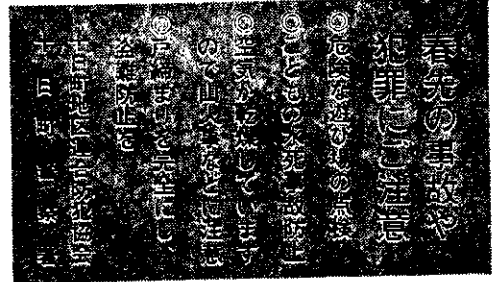 春先の事故や
犯罪にご注意
◎危険な遊び場の点検
◎こどもの水死事故防止
◎空気が乾燥しています
ので山火事などに注意
◎戸締まりを完全にし、
盗難防止を
十日町地区防犯協会
十日町警察署